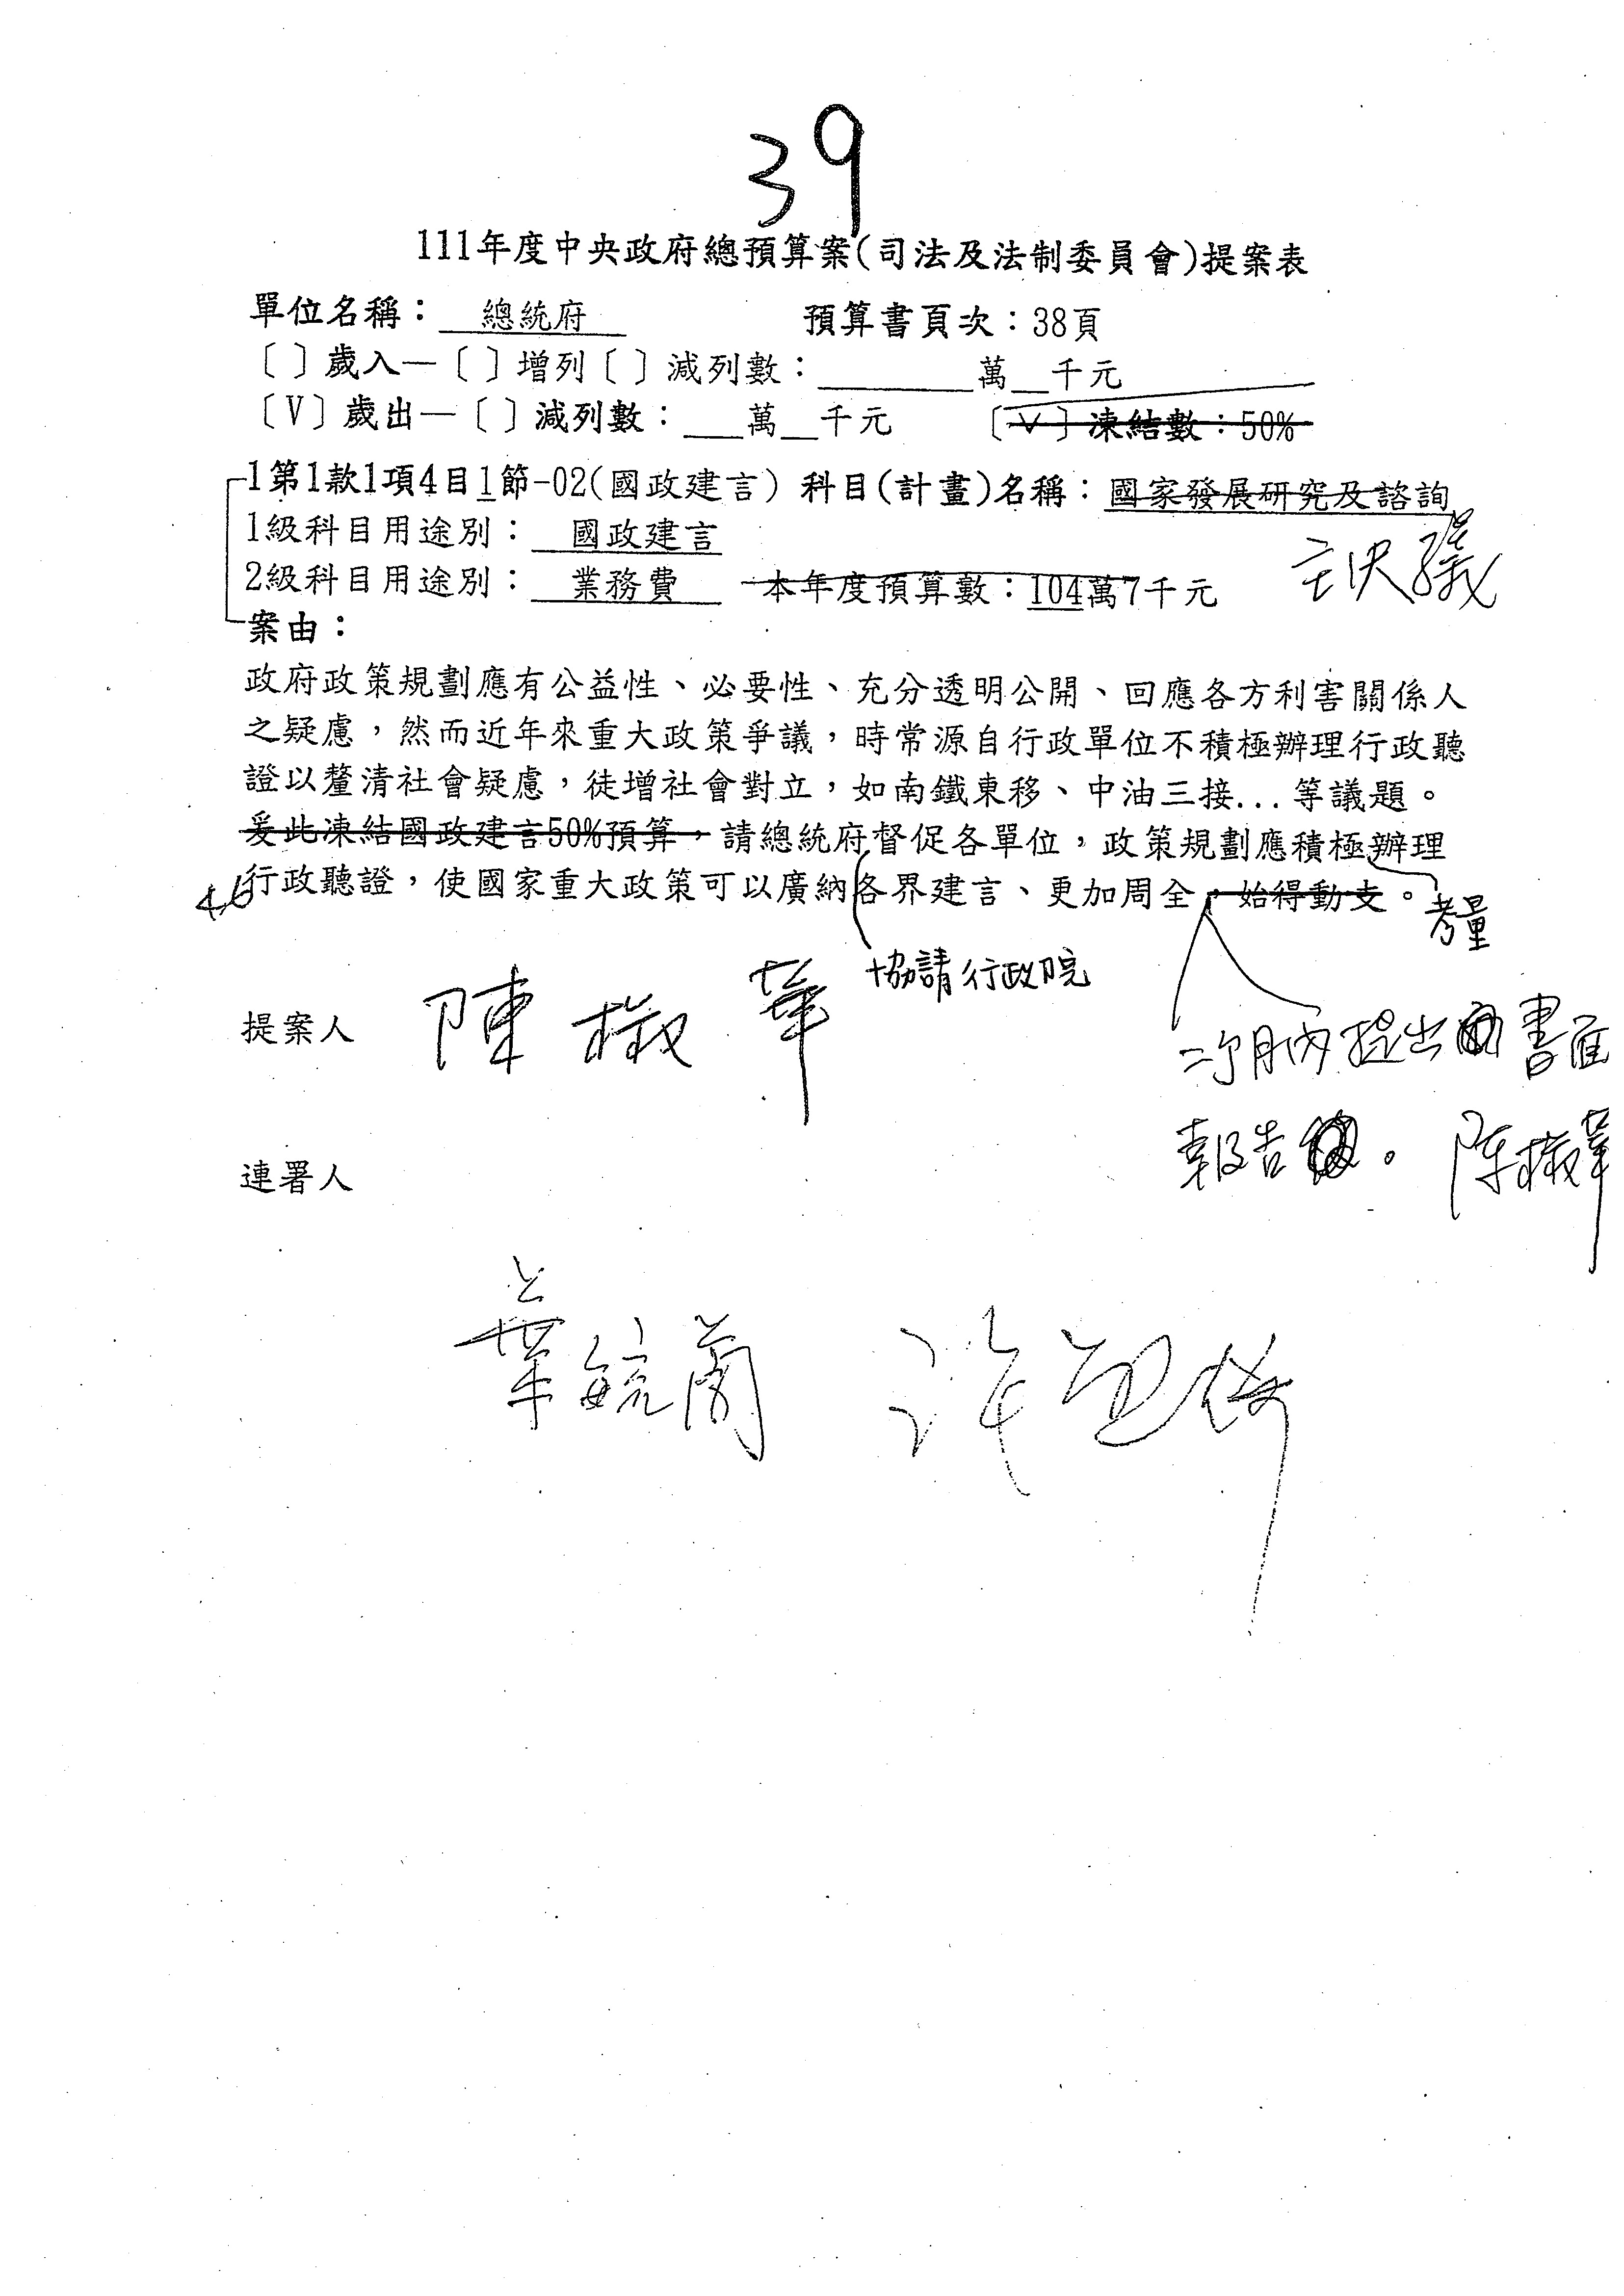 39
111年度中央政府總預算案(司法及法制委員會)提案表
單位名稱： 總統府 預算書頁次：38頁
〔 〕歲入—〔 〕增列〔 〕減列數：________萬__千元
〔V〕歲出—〔 〕減列數：___萬__千元 〔V〕凍結數：50%
1第1款1項4目1節-02(國政建言) 科目(計畫)名稱：國家發展研究及諮詢
1級科目用途別： 國政建言
2級科目用途別： 業務費 本年度預算數：104萬7千元
主決議
案由：
政府政策規劃應有公益性、必要性、充分透明公開、回應各方利害關係人
之疑慮，然而近年來重大政策爭議，時常源自行政單位不積極辦理行政聽
證以釐清社會疑慮，徒增社會對立，如南鐵東移、中油三接...等議題。
爰此凍結國政建言50%預算，請總統府督促各單位，政策規劃應積極辦理
行政聽證，使國家重大政策可以廣納各界建言、更加周全，始得動支。
考量
協請行政院
提案人 陳椒華
二個月內提出書面
報告。 陳椒華
連署人
葉毓蘭